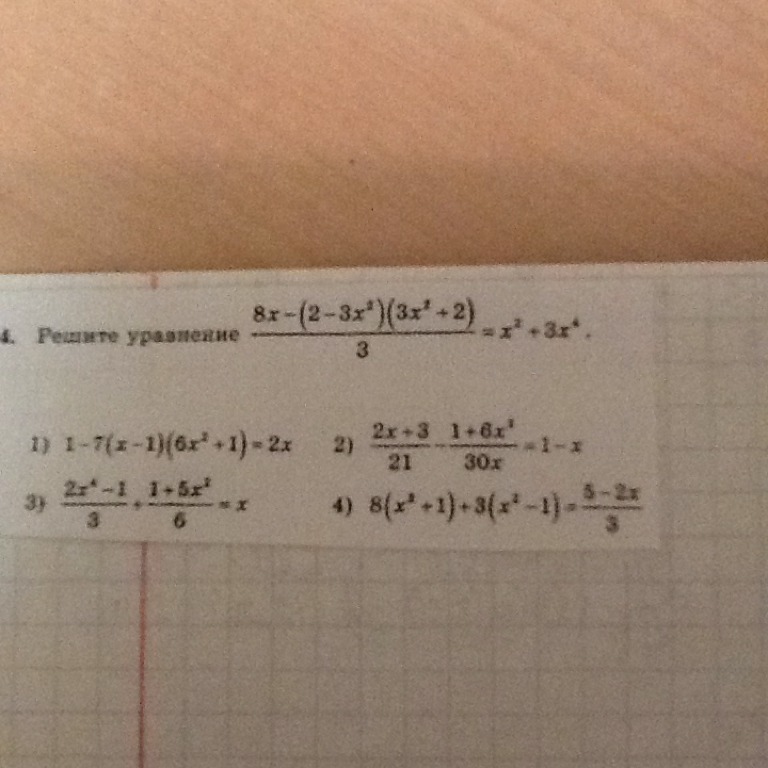 4. Решите уравнение (8x-(2-3x²)(3x²+2))/3 = x²+3x⁴.
1) 1-7(x-1)(6x²+1)=2x 2) (2x+3)/21 - (1+6x²)/30x = 1-x
3) (2x⁴-1)/3 + (1+5x²)/6 = x 4) 8(x²+1)+3(x²-1)=(5-2x)/3